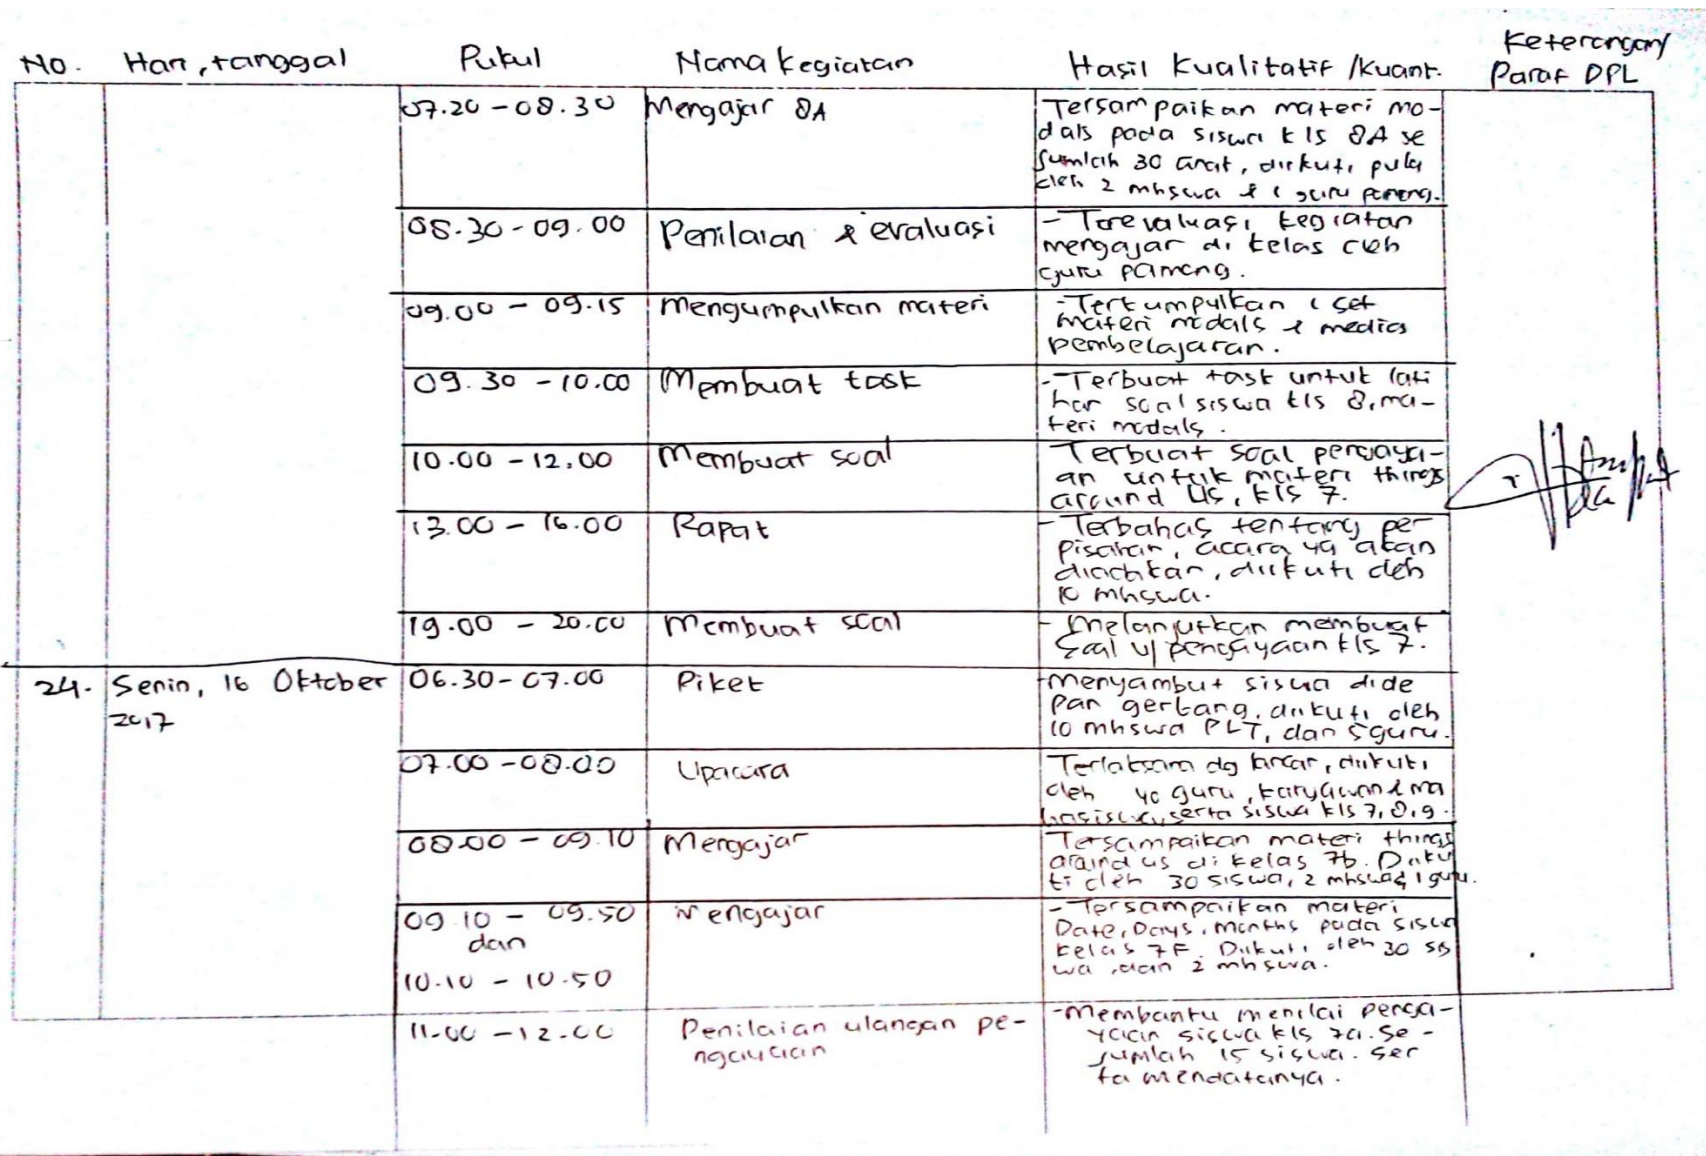 No. Hari, tanggal Pukul Nama kegiatan Hasil Kualitatif /Kuant. Keterangan/
Paraf DPL
07.20 - 08.30 Mengajar 8A Tersampaikan materi mo-
dals pada siswa kls 8A se
jumlah 30 anak, diikuti pula
oleh 2 mhswa & 1 guru pamong.
08.30 - 09.00 Penilaian & evaluasi - Terevaluasi kegiatan
mengajar di kelas oleh
guru pamong.
09.00 - 09.15 Mengumpulkan materi - Terkumpulkan 1 set
materi modals & media
pembelajaran.
09.30 - 10.00 Membuat task - Terbuat task untuk lati
han soal siswa kls 8, ma-
teri modals.
10.00 - 12.00 Membuat soal Terbuat soal pengaya-
an untuk materi things
around us, kls 7.
13.00 - 16.00 Rapat - Terbahas tentang per
pisahan, acara yg akan
diadakan, diikuti oleh
10 mhswa.
19.00 - 20.00 Membuat soal - Melanjutkan membuat
soal u/ pengayaan kls 7.
24. Senin, 16 Oktober 06.30 - 07.00 Piket Menyambut siswa dide
2017 pan gerbang, diikuti oleh
10 mhswa PLT, dan 5 guru.
07.00 - 08.00 Upacara Terlaksana dg lancar, diikuti
oleh 40 guru, karyawan & ma
hasiswa, serta siswa kls 7, 8, 9.
08.00 - 09.10 Mengajar Tersampaikan materi things
around us di kelas 7b. Diiku
ti oleh 30 siswa, 2 mhswa & 1 guru.
09.10 - 09.50 Mengajar - Tersampaikan materi
dan Date, Days, Months pada siswa
kelas 7F. Diikuti oleh 30 sis
10.10 - 10.50 wa, dan 2 mhswa.
11.00 - 12.00 Penilaian ulangan pe- - Membantu menilai penga-
ngayaan yaan siswa kls 7a. Se-
jumlah 15 siswa. ser
ta mendatanya.